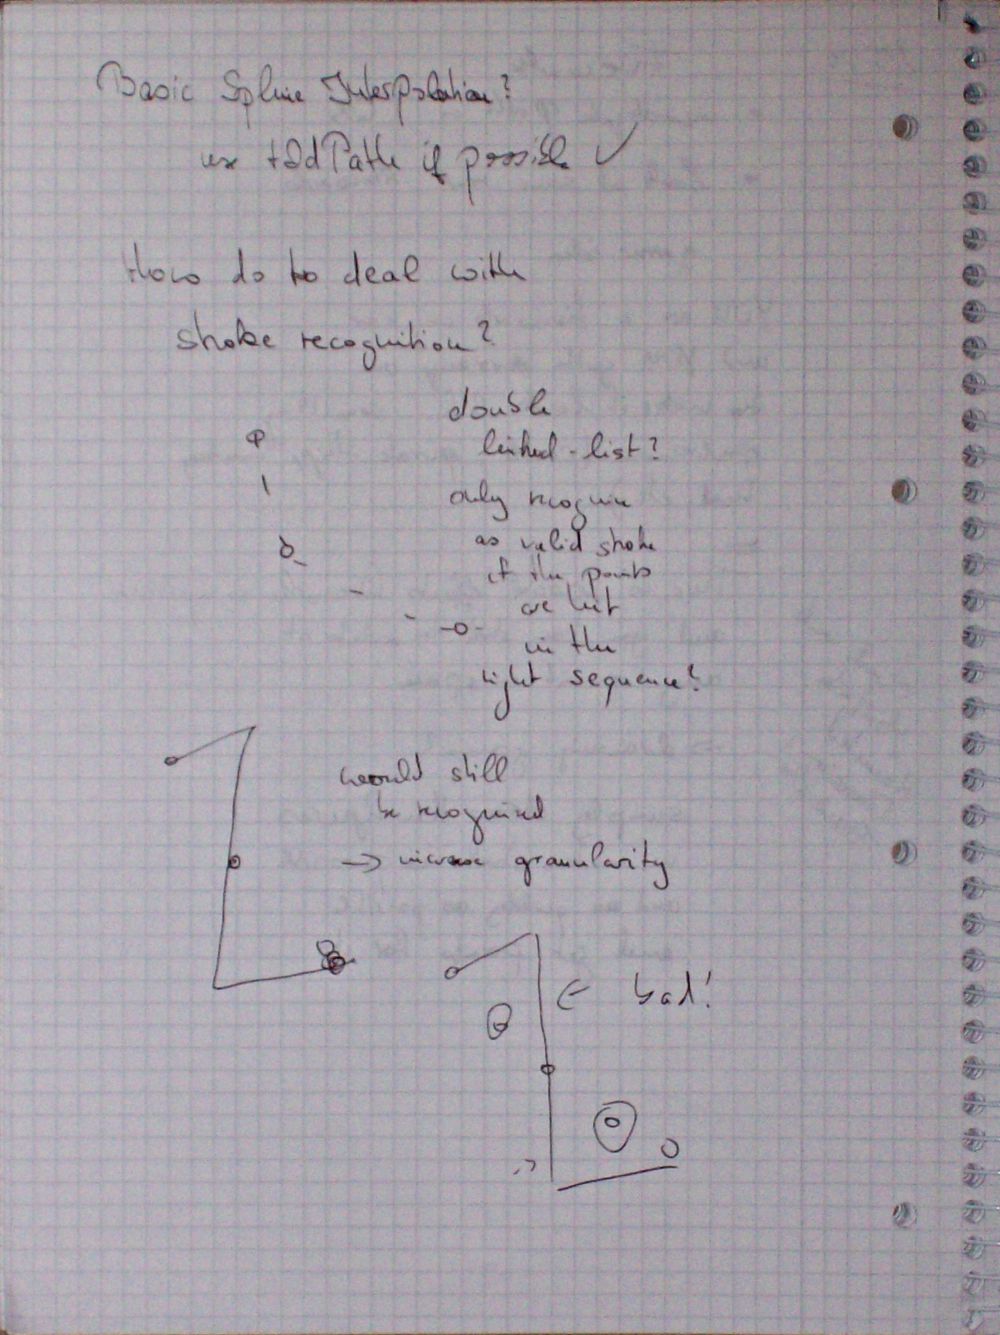 Basic Spline Interpolation?
use t2dPath if possible ✓
How do to deal with
stroke recognition?
double
linked-list?
only recognize
as valid stroke
if the points
are hit
in the
right sequence?
would still
be recognized
-> increase granularity
<- bad!
->